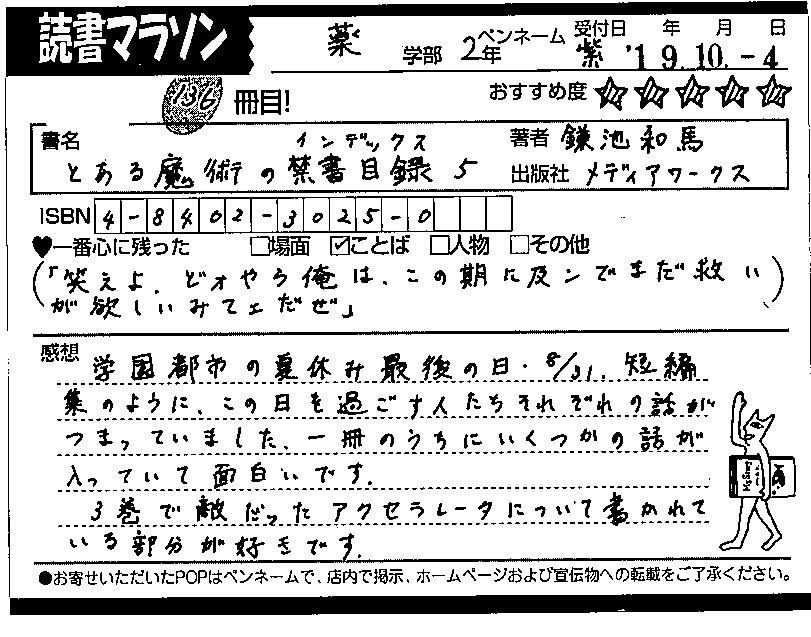 読書マラソン
薬 学部 2年 ペンネーム 紫 受付日 年 月 日 '19.10.-4
136 冊目! おすすめ度 ☆☆☆☆☆
書名 インデックス 著者 鎌池和馬
とある魔術の禁書目録 5 出版社 メディアワークス
ISBN 4-8402-3025-0
♥一番心に残った □場面 ☑ことば □人物 □その他
(「笑えよ、どォやら俺は、この期に及ンでまだ救い
が欲しいみてェだぜ」)
感想 学園都市の夏休み最後の日・8/31. 短編
集のように、この日を過ごす人たちそれぞれの話が
つまっていました、一冊のうちにいくつかの話が
入っていて面白いです.
3巻で敵だったアクセラレータについて書かれて
いる部分が好きです.
●お寄せいただいたPOPはペンネームで、店内で掲示、ホームページおよび宣伝物への転載をご了承ください。